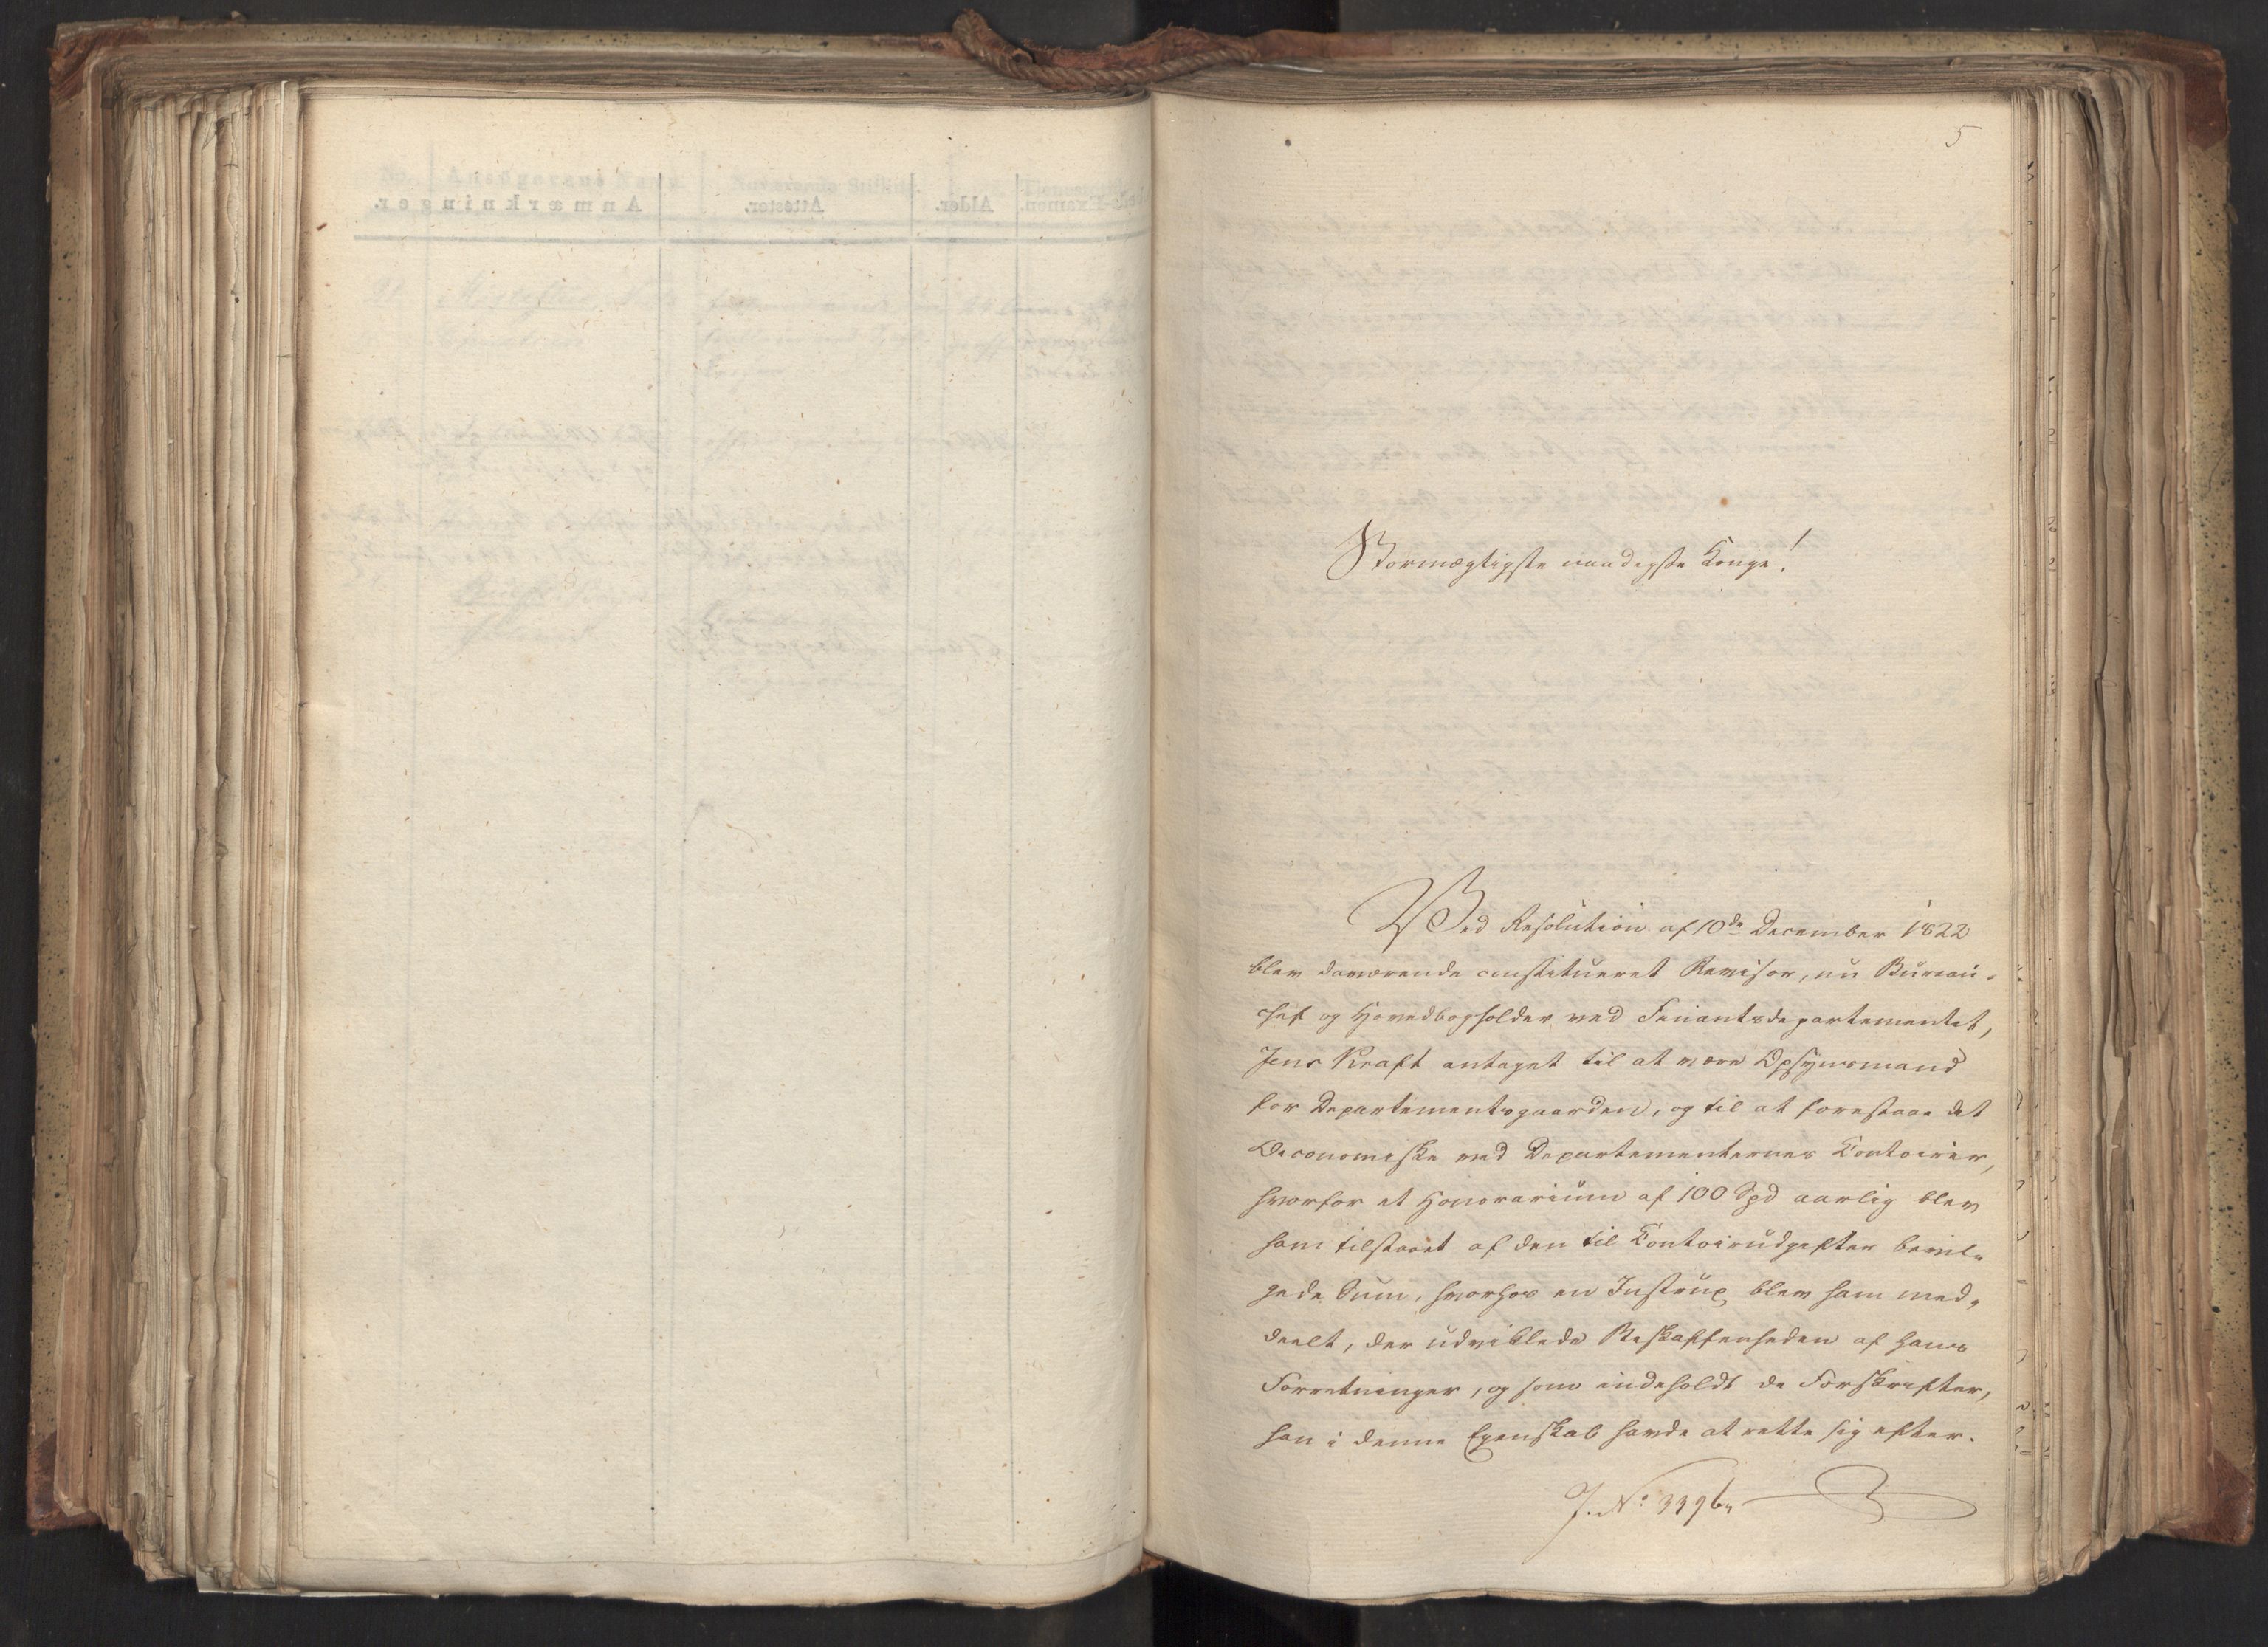 5
Stormægtigste naadigste Konge!
Ved Resolution af 10de December 1822
blev daværende constitueret Revisor, nu Bureau-
chef og Hovedbogholder ved Finantsdepartementet,
Jens Kraft antaget til at være Opsynsmand
for Departementsgaarden, og til at forestaae det
Oeconomiske ved Departementernes Contoirer,
hvorfor et Honorarium af 100 Spd aarlig blev
ham tilstaaet af den til Contoirudgifter bevil-
gede Sum, hvorhos en Instrux blev ham med-
deelt, der udviklede Beskaffenheden af hans
Forretninger, og som indeholdt de Forskrifter,
han i denne Egenskab havde at rette sig efter.
J. No